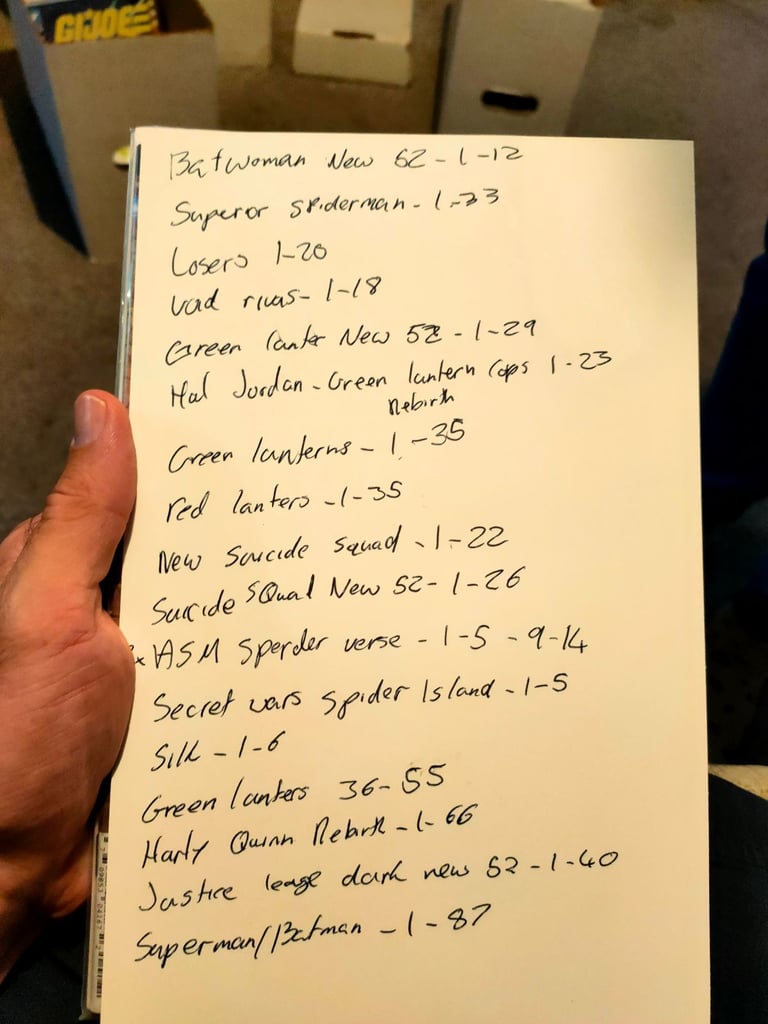 GIJOE
Batwoman New 52 - 1-12
Superor spiderman - 1-33
Losers 1-20
1-18
Green lanter New 52 - 1-29
Hal Jordan - Green lantern Cops 1-23
Rebirth
Green lanterns - 1-35
red lanters - 1-35
New Suicide Squad - 1-22
Suicide SQuad New 52 - 1-26
ASM Sperder verse - 1-5 - 9-14
Secret wars spider Island - 1-5
Silk - 1-6
Green lanters 36-55
Harly Quinn Rebirth - 1-66
Justice leage dark new 52 - 1-40
Superman/Batman - 1-87